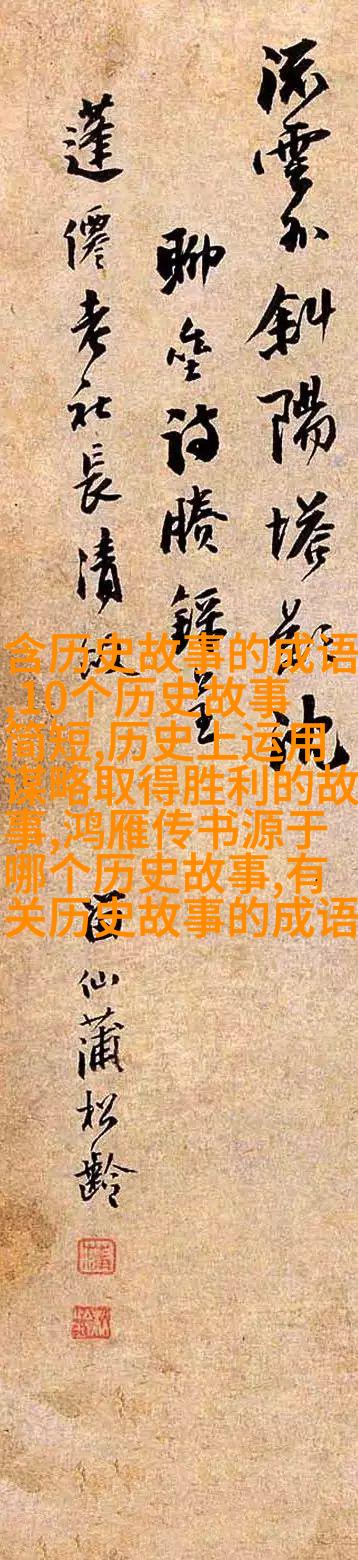 流雲外斜陽塔影沈
蓬僊老社長清
仙蒲松齡
含历史故事的成语
,10个历史故事
简短,历史上运用
谋略取得胜利的故
事,鸿雁传书源于
哪个历史故事,有
关历史故事的成语